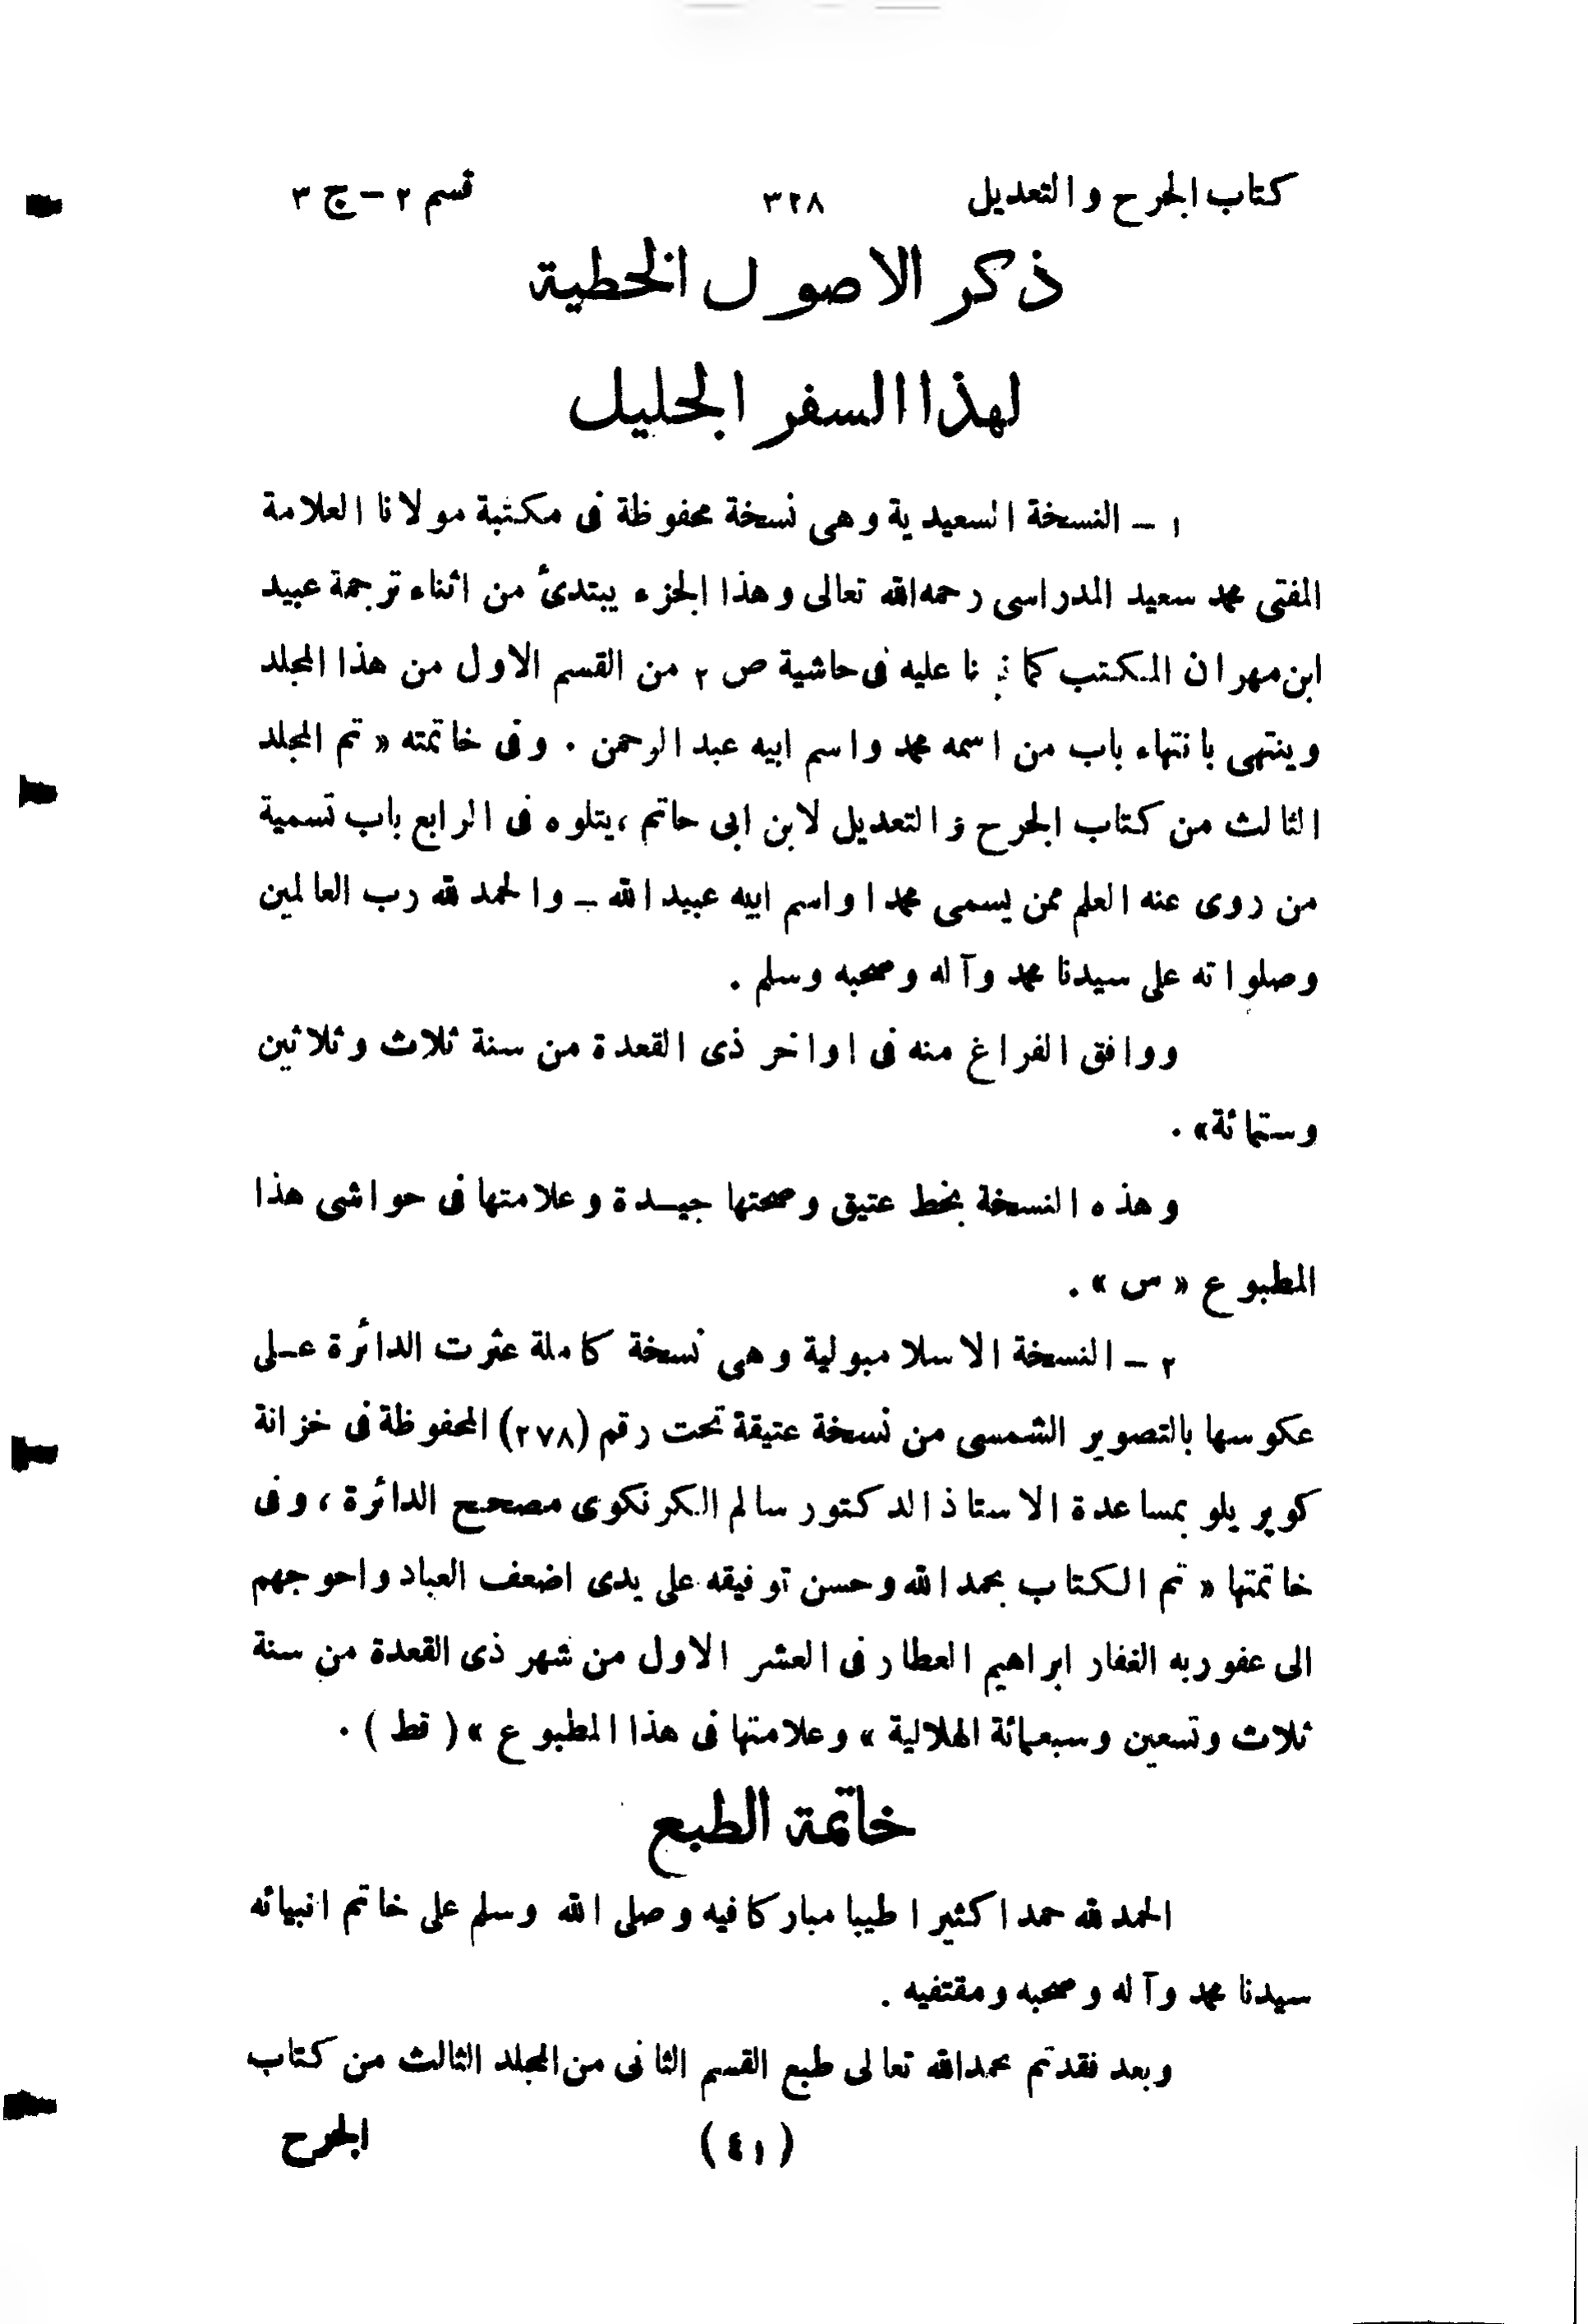 كتاب الجرح والتعديل ٣٢٨ قسم ٢ – ج ٣
ذكر الاصول الخطية
لهذا السفر الجليل
١ – النسخة السعيدية وهى نسخة محفوظة فى مكتبة مولانا العلامة
المفتى محمد سعيد المدراسى رحمه الله تعالى وهذا الجزء يبتدئ من اثناء ترجمة عبيد
ابن مهران المكتب كما نبهنا عليه فى حاشية ص ٢ من القسم الاول من هذا المجلد
وينتهى بانتهاء باب من اسمه محمد واسم ابيه عبد الرحمن . وفى خاتمته « تم المجلد
الثالث من كتاب الجرح والتعديل لابن ابى حاتم ، يتلوه فى الرابع باب تسمية
من روى عنه العلم ممن يسمى محمدا واسم ابيه عبيد الله – والحمد لله رب العالمين
وصلواته على سيدنا محمد وآله وصحبه وسلم .
ووافق الفراغ منه فى اواخر ذى القعدة من سنة ثلاث وثلاثين
وستمائة» .
وهذه النسخة بخط عتيق وصحتها جيدة وعلامتها فى حواشى هذا
المطبوع « س » .
٢ – النسخة الاسلامبولية وهى نسخة كاملة عثرت الدائرة على
عكوسها بالتصوير الشمسى من نسخة عتيقة تحت رقم (٢٧٨) المحفوظة فى خزانة
كوپريلو بمساعدة الاستاذ الدكتور سالم الكرنكوى مصحح الدائرة ، وفى
خاتمتها « تم الكتاب بحمد الله وحسن توفيقه على يدى اضعف العباد واحوجهم
الى عفو ربه الغفار ابراهيم العطار فى العشر الاول من شهر ذى القعدة من سنة
ثلاث وتسعين وسبعمائة الهلالية » وعلامتها فى هذا المطبوع » ( قط ) .
خاتمة الطبع
الحمد لله حمدا كثيرا طيبا مباركا فيه وصلى الله وسلم على خاتم انبيائه
سيدنا محمد وآله وصحبه ومقتفيه .
وبعد فقد تم بحمد الله تعالى طبع القسم الثانى من المجلد الثالث من كتاب
(٤١) الجرح